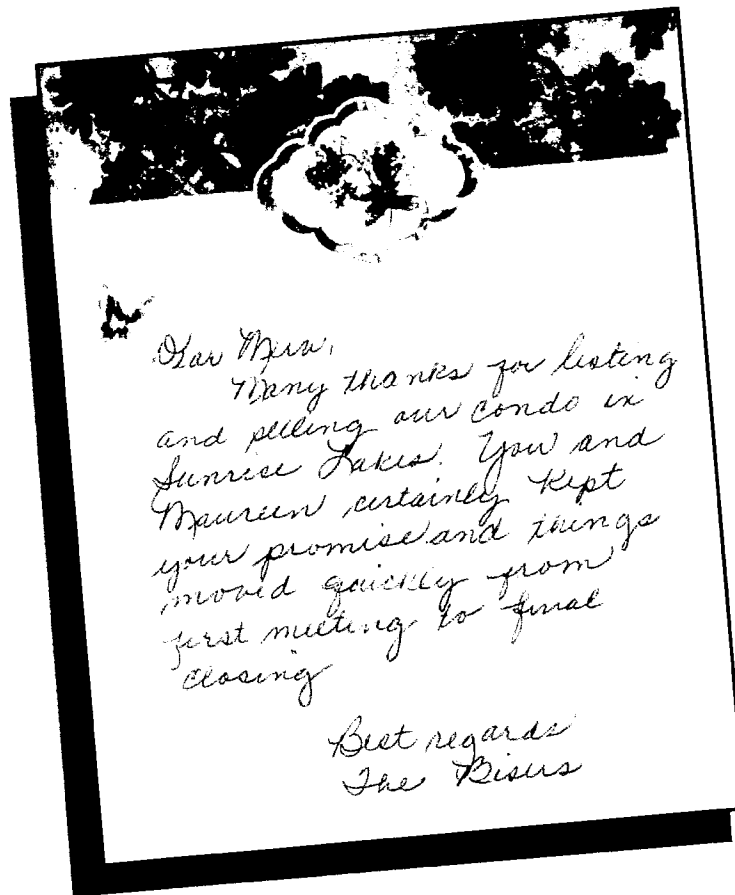 Dear Mera,
Many thanks for listing
and selling our condo in
Sunrise Lakes. You and
Maureen certainly kept
your promise and things
moved quickly from
first meeting to final
closing
Best regards
The Bisers